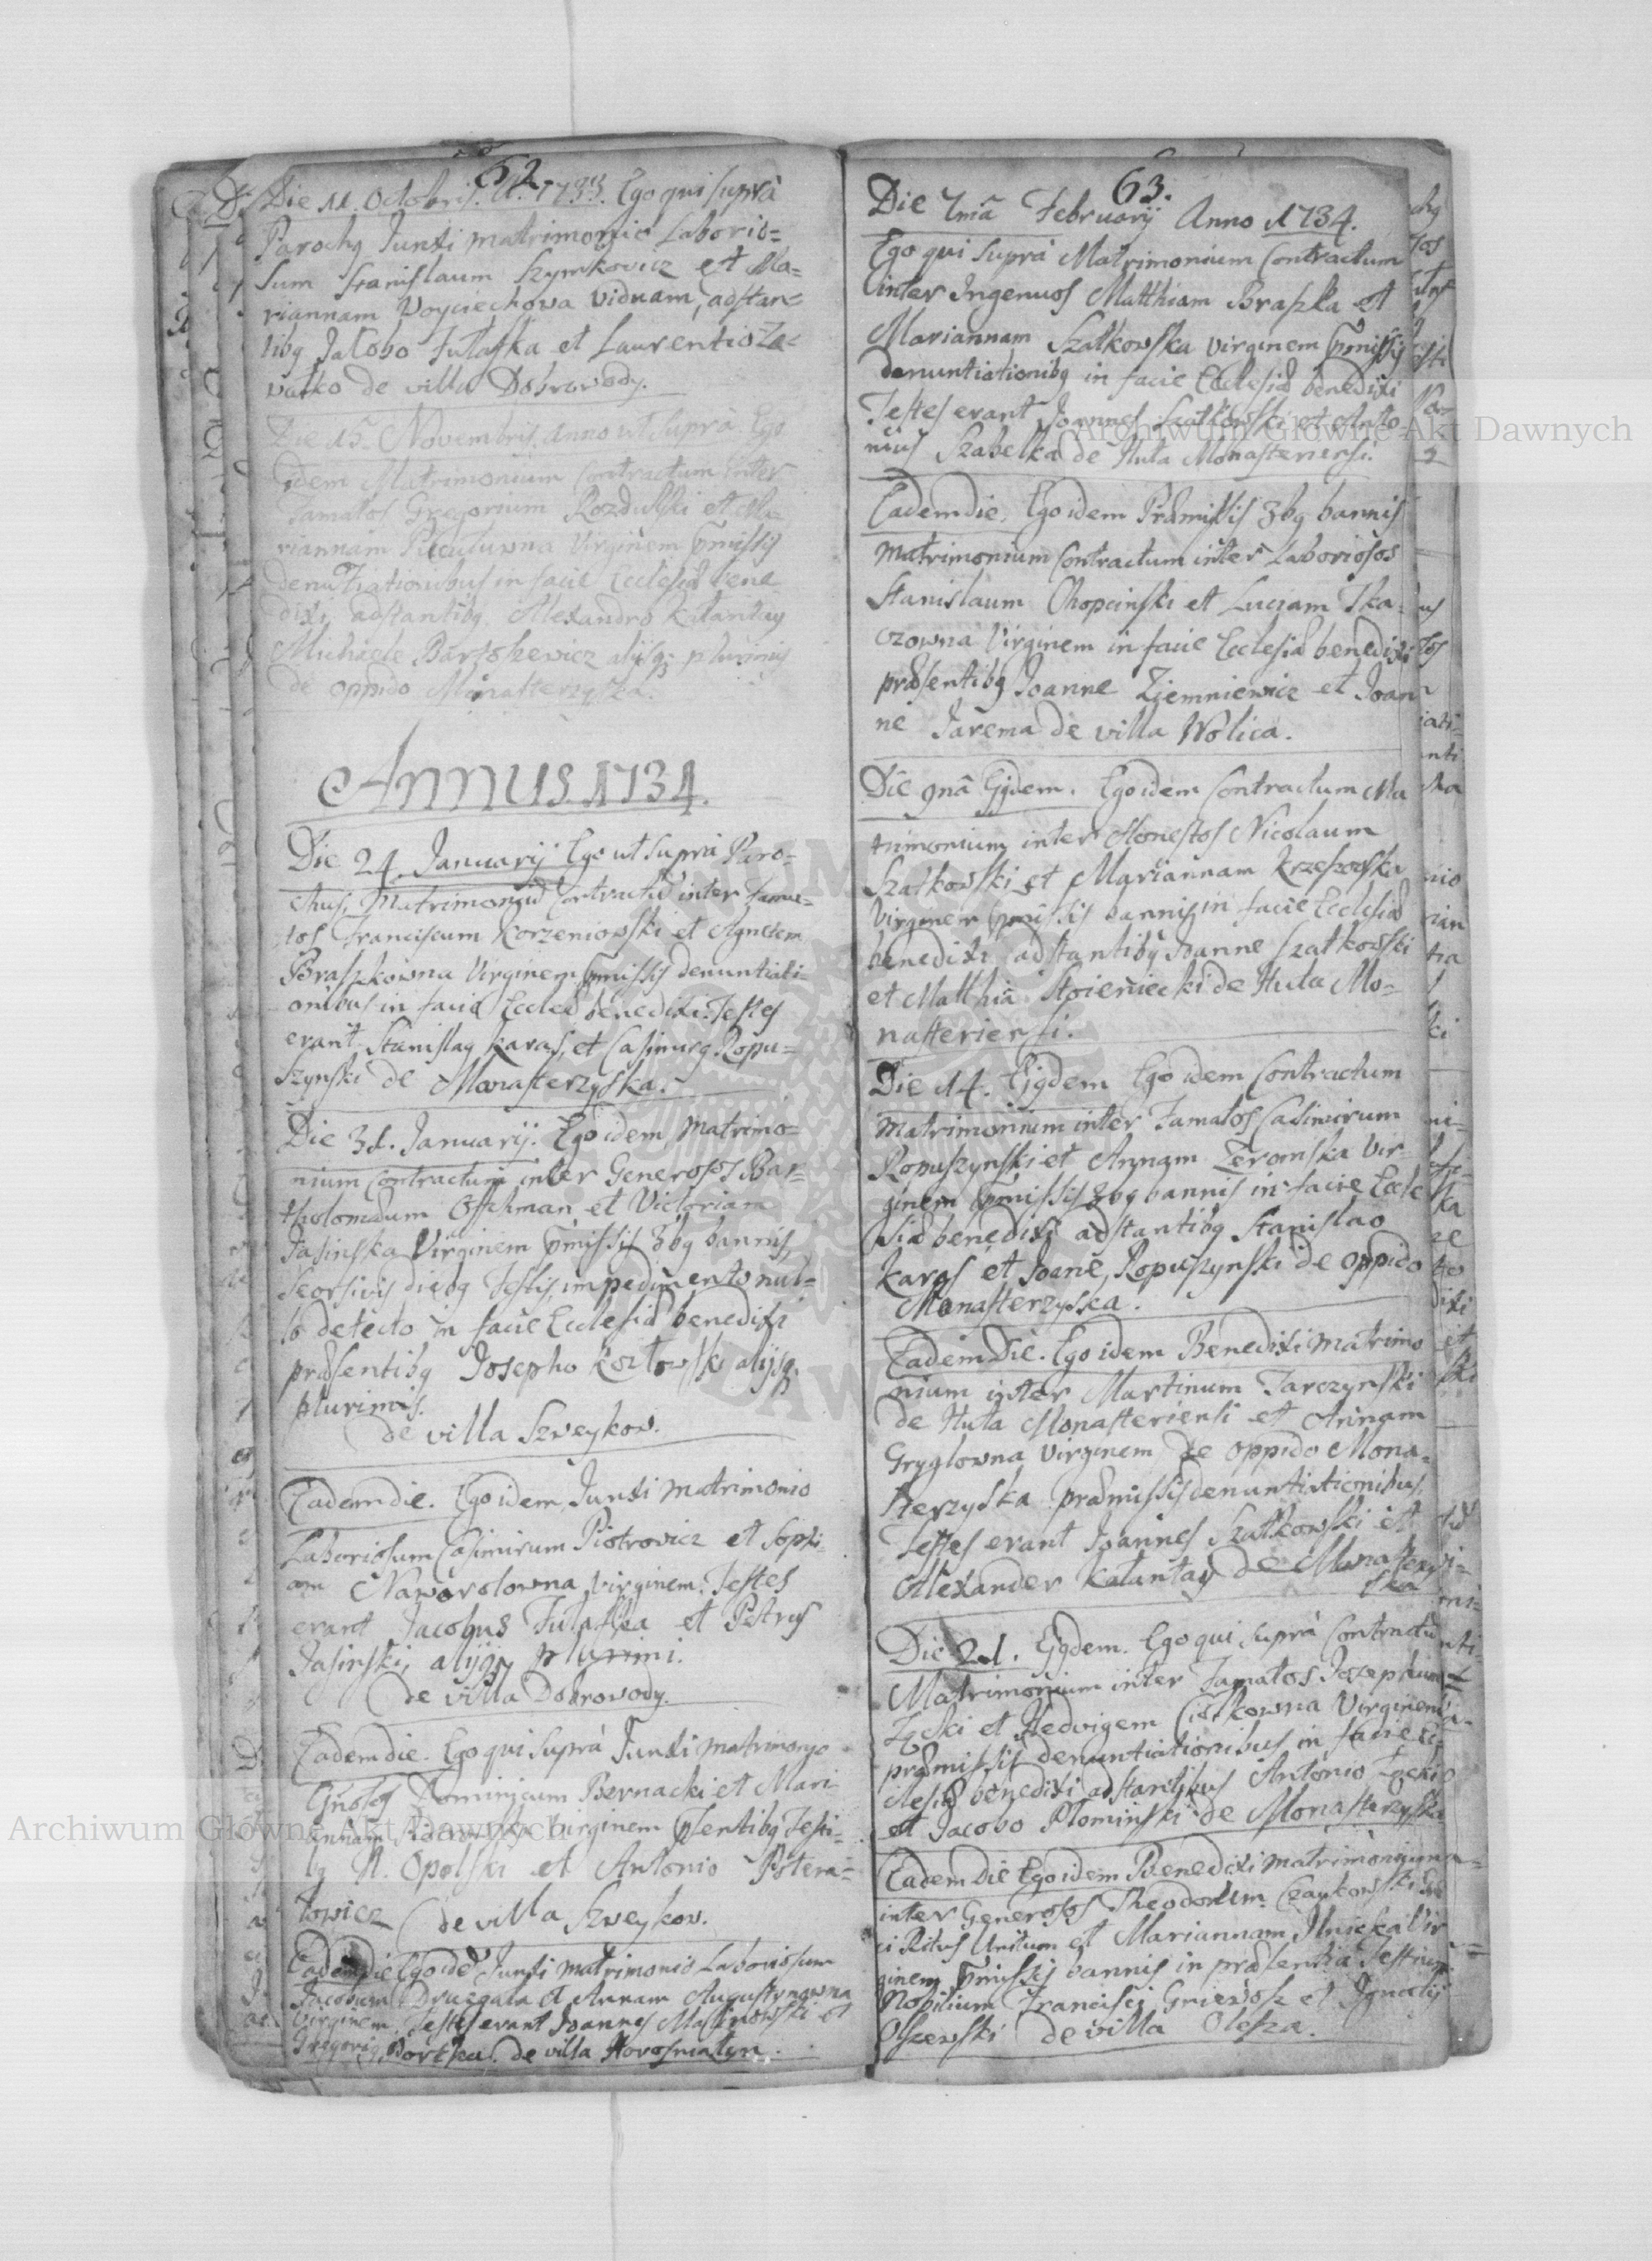 62.
Die 11. Octobris. A. 1733. Ego qui suprà
Parochq Junxi matrimonio Laborio=
sum Stanislaum Szymkovicz et Ma=
riannam Voyciechowa viduam, adstan=
tibq Jacobo Fulaska et Laurentio Za=
ватko de villa Dobrowody.
Die 15. Novembris, Anno ut suprà Ego
idem Matrimonium Contractum inter
Famatos Gregorium Rozdulski et Ma=
riannam Virginem pmissis
denutiationibus in facie Ecclesiæ bene
dixi, adstantibq Alexandro Kalantay
Michaele Bartoszewicz alijsq; plurimis
de oppido Monasterzyska.
ANNUS 1734.
Die 24. Januarij Ego ut supra Paro=
chus, Matrimoniũ Contractũ inter Fama=
tos Franciscum Korzeniowski et Agnetem
Braszkowna Virginem pmissis denuntiati=
onibus in facie Eccleæ benedixi. Testes
erant Stanislaq Karas, et Casimirq Ropu=
szynski de Monasterzyska.
Die 31. Januarij. Ego idem Matrimo=
nium Contractum inter Generosos Bar=
tholomæum Offchman et Victoriam
Jasinska Virginem pmissis 3bq bannis,
seorsivis diebq Festis, impedimento nul=
lo detecto in facie Ecclesiæ benedixi
præsentibq Josepho Kozłowski alijsq;
plurimis.
de villa Szweykow.
Eadem die. Ego idem Junxi matrimonio
Laboriosum Casimirum Piotrovicz et Sophi=
am Naworolowna Virginem. Testes
erant Jacobus Fulaska et Petrus
Jasinski, alijq; plurimi.
de villa Dobrowody.
Eadem die. Ego qui suprà Junxi matrimonyo
Gñosos Dominicum Bernacki et Mari=
annam Virginem psentibq Testi=
bq N. Opolski et Antonio Potera=
lowicz de villa Szweykow.
Eadem die Ego idẽ Junxi matrimonio Laboriosum
Jacobum Druzgala et Annam Augustynowna
Virginem Testes erant Joannes Malinowski et
Gregoriq Bortska de villa Horosnatyn.
63.
Die 7mâ Februarij Anno 1734.
Ego qui suprà Matrimonium Contractum
inter Ingenuos Matthiam Braszka et
Mariannam Szatkowska virginem pmissis
denuntiationibq in facie Ecclesiæ benedixi
Testes erant Joannes Szatkowski et Anto=
nius Szabelka de Huta Monasteriensi.
Eadem die. Ego idem Præmissis 3bq bannis
Matrimonium Contractum inter Laboriosos
Stanislaum Chopcinski et Luciam Tka=
czowna Virginem in facie Ecclesiæ benedixi
præsentibq Joanne Ziemniewicz et Joan
ne Jarema de villa Wolica.
Die 9nâ Ejqdem. Ego idem Contractum Ma
trimonium inter Honestos Nicolaum
Szatkowski et Mariannam Krzeszowska
Virginem pmissis bannis in facie Ecclesiæ
benedixi adstantibq Joanne Szatkowski
et Matthia Stoieniecki de Huta Mo=
nasteriensi.
Die 14. Ejqdem Ego idem Contractum
Matrimonium inter Famatos Casimirum
Ropuszynski et Annam Zeromska Vir=
ginem pmissis 3bq bannis in facie Eccle
siæ benedixi adstantibq Stanislao
Karas et Joane Ropuszynski de oppido
Monasterzyska.
Eadem Die. Ego idem Benedixi matrimo
nium inter Martinum Tarczynski
de Huta Monasteriensi et Annam
Gryglowna Virginem de oppido Mona=
sterzyska præmissis denuntiationibus.
Testes erant Joannes Szatkowski et
Alexander Kalantay de Monasterzy
ska
Die 21. Ejqdem. Ego qui suprà Contractũ
Matrimonium inter Famatos Josephum
Zęcki et Hedvigem Virginem
præmissis denuntiationibus in facie Ec
clesiæ benedixi adstantibus Antonio Zęcki
et Jacobo Plominski de Monasterzyska
Eadem Die Ego idem Benedixi matrimonium
inter Generosos Theodorum Czaykowski
Ritus Unitum et Mariannam Ilnicka Vir
ginem pmissis bannis in præsentia Testium
Nobilium Francisci Gniewosz et Ignatij
Olszewski de villa Olesza.
Archiwum Główne Akt Dawnych
Archiwum Główne Akt Dawnych